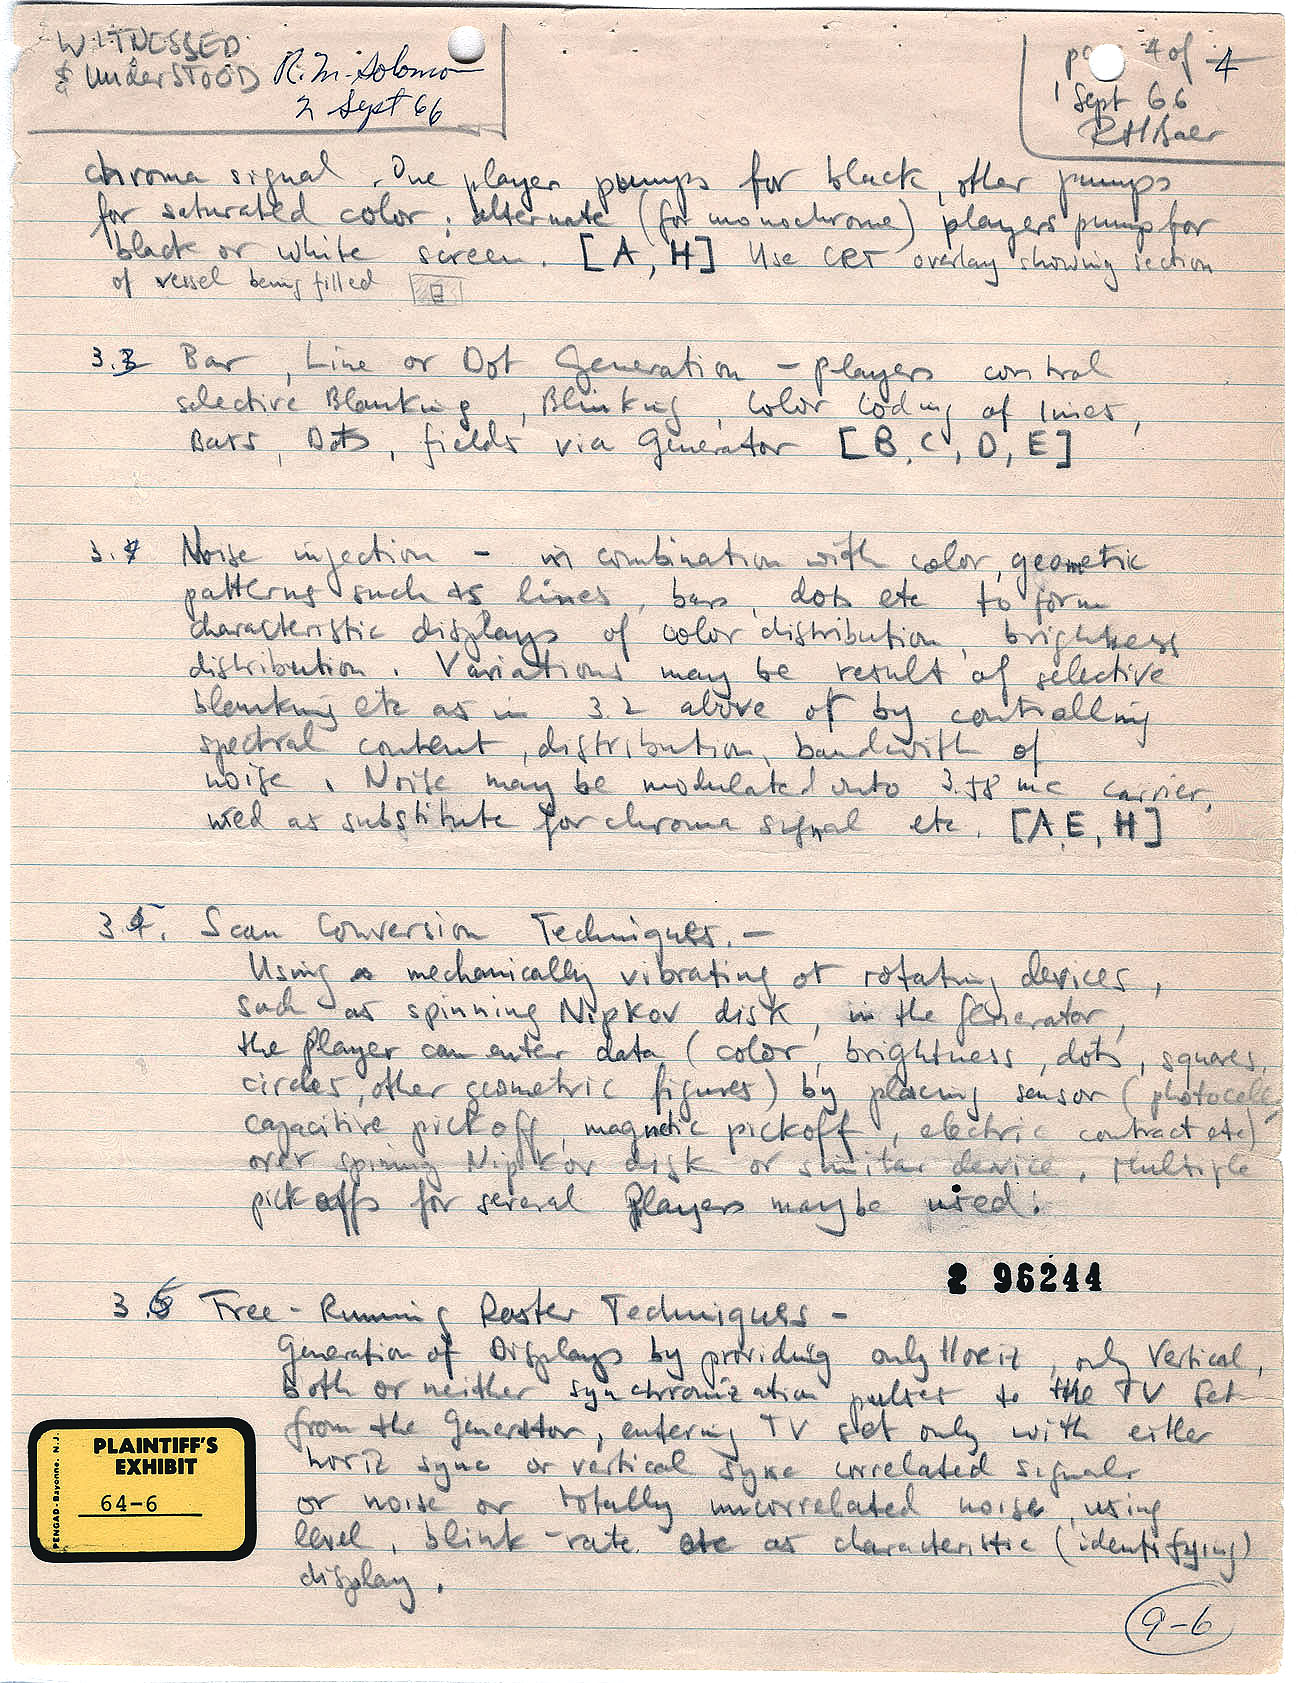 WITNESSED
& UnderSTOOD R.M. Solomon
2 Sept 66
4 of 4
1 Sept 66
RHBaer
chroma signal. One player pumps for black, other pumps
for saturated color; alternate (for monochrome) players pump for
black or white screen. [A, H] Use CRT overlay showing section
of vessel being filled
3.3 Bar, Line or Dot Generation - players control
selective Blanking, Blinking, Color Coding of lines,
Bars, Dots, fields via Generator [B, C, D, E]
3.4 Noise injection - in combination with color, geometric
patterns such as lines, bars, dots etc to form
characteristic displays of color distribution, brightness
distribution. Variations may be result of selective
blanking etc as in 3.2 above or by controlling
spectral content, distribution, bandwith of
noise. Noise may be modulated onto 3.58 mc carrier,
used as substitute for chroma signal etc. [A, E, H]
3.5. Scan Conversion Techniques. -
Using a mechanically vibrating or rotating devices,
such as spinning Nipkov disk, in the Generator,
the Player can enter data (color, brightness, dots, squares,
circles, other geometric figures) by placing sensor (photocell,
capacitive pickoff, magnetic pickoff, electric contract etc)
over spinning Nipkov disk or similar device. Multiple
pickoffs for several Players may be used.
2 96244
3.6 Free-Running Raster Techniques -
Generation of Displays by providing only Horiz, only Vertical,
both or neither synchronization pulses to the TV set
from the Generator, entering TV set only with either
horiz sync or vertical sync correlated signals
or noise or totally uncorrelated noise, using
level, blink-rate etc as characteristic (identifying)
display.
PENGAD-Bayonne, N.J.
PLAINTIFF'S
EXHIBIT
64-6
9-6